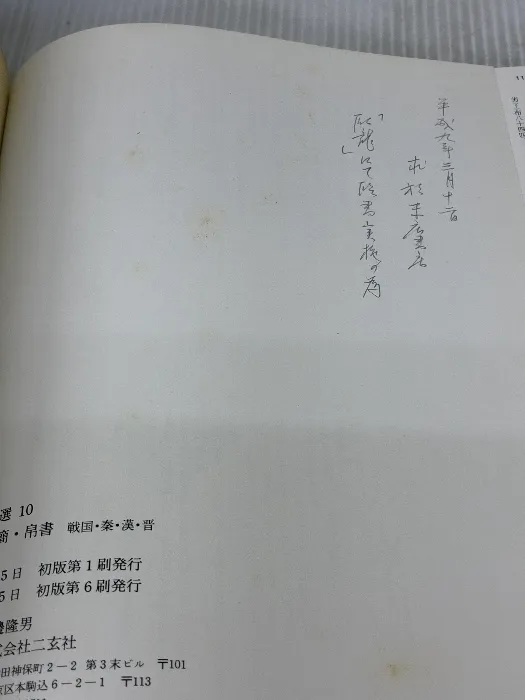 平成九年三月十二日
求於東店書店
「臥龍」にて臨書実技の為
選 10
簡・帛書 戦国・秦・漢・晋
5日 初版第1刷発行
5日 初版第6刷発行
邊隆男
式会社二玄社
田神保町2−2 第3末ビル 〒101
京区本駒込6−2−1 〒113
11